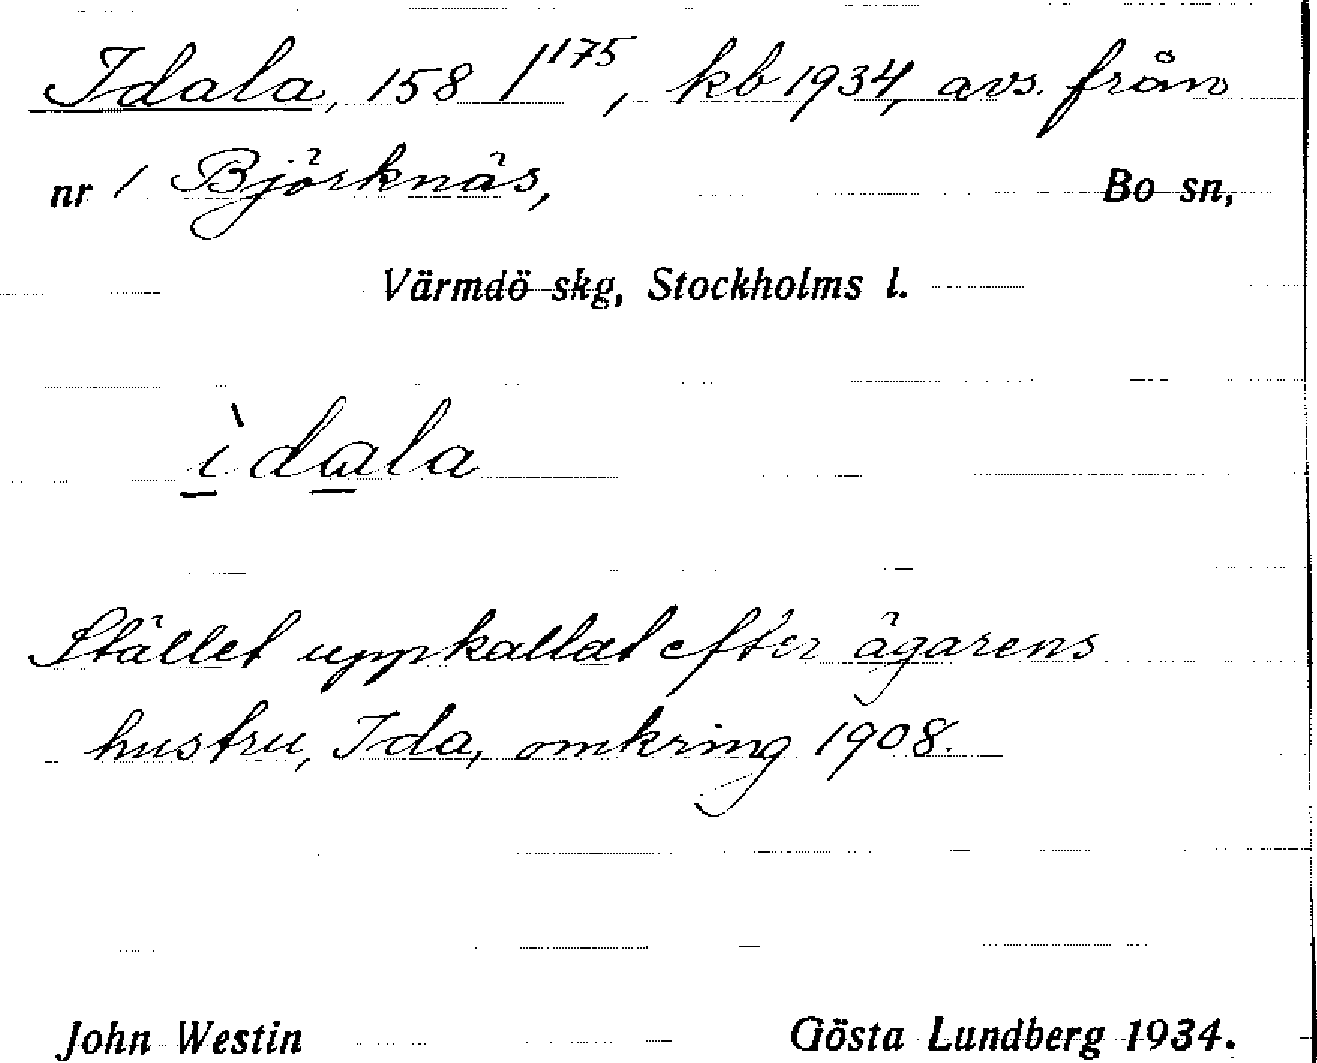 Idala, 158 1/175, kb 1934, avs. från
nr 1 Björknäs, Bo sn,
Värmdö skg, Stockholms l.
ìdala
Stället uppkallat efter ägarens
hustru, Ida, omkring 1908.
John Westin Gösta Lundberg 1934.